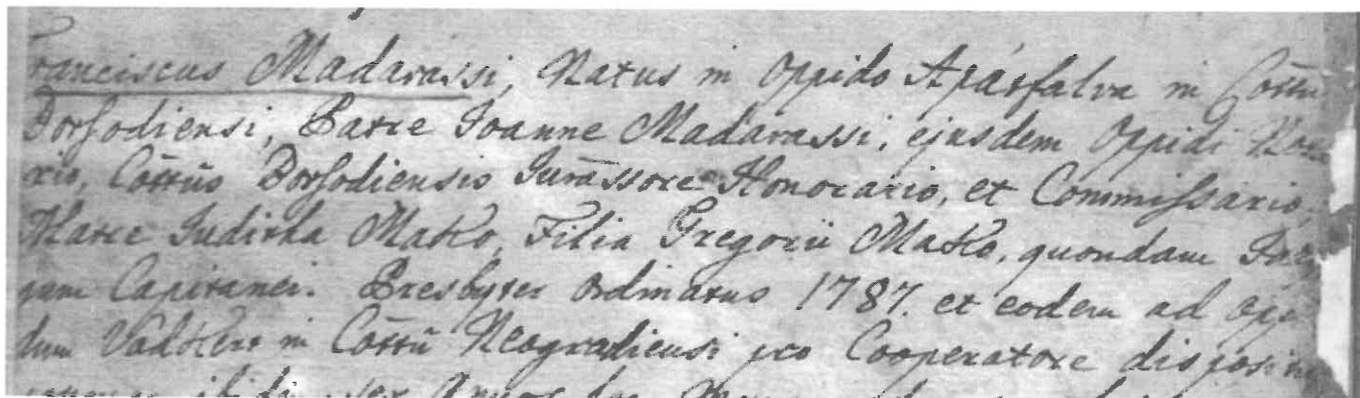 Franciscus Madarassi, Natus in Oppido Apátfalva in Cottu
Borsodiensi, Patre Joanne Madarassi, ejusdem Oppidi No
rio, Cottûs Borsodiensis Jurassore Honorario, et Commissario,
Matre Juditha Matko, Filia Gregorii Matko, quondam
gum Capitanei. Presbyter ordinatus 1787. et eodem ad oppi
dum Vadkert in Cottu Neogradiensi pro Cooperatore disposit